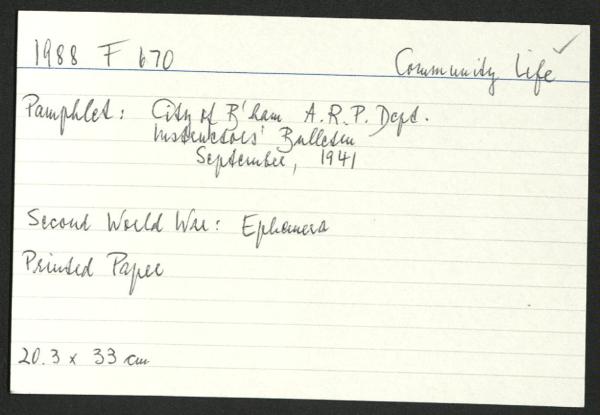 1988 F 670
Community Life
Pamphlet: City of B'ham A.R.P. Dept.
Instructors' Bulletin
September, 1941
Second World War: Ephemera
Printed Paper
20.3 x 33 cm